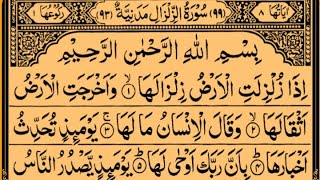 اٰیَاتُهَا ٨ (٩٩) سُوْرَةُ الزِّلْزَالِ مَدَنِیَّةٌ (٩٣) رُكُوْعُهَا ١
بِسْمِ اللّٰهِ الرَّحْمٰنِ الرَّحِیْمِ
اِذَا زُلْزِلَتِ الْاَرْضُ زِلْزَالَهَا ١ وَاَخْرَجَتِ الْاَرْضُ
اَثْقَالَهَا ٢ وَقَالَ الْاِنْسَانُ مَا لَهَا ٣ یَوْمَىِٕذٍ تُحَدِّثُ
اَخْبَارَهَا ٤ بِاَنَّ رَبَّكَ اَوْحٰی لَهَا ٥ یَوْمَىِٕذٍ یَّصْدُرُ النَّاسُ